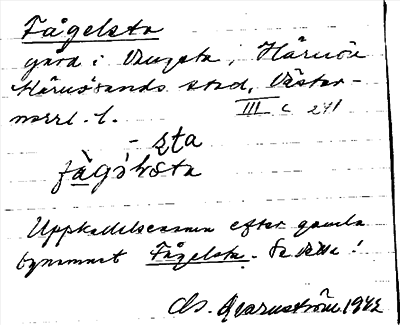 Fågelsta
gård i Vangsta, Härnön
Härnösands stad, Väster-
norrl. l. III c 241
- sta
fågəlsta
Uppkallelsenamn efter gamla
bynamnet Fågelsta. Se detta!
Kvarnström 1942